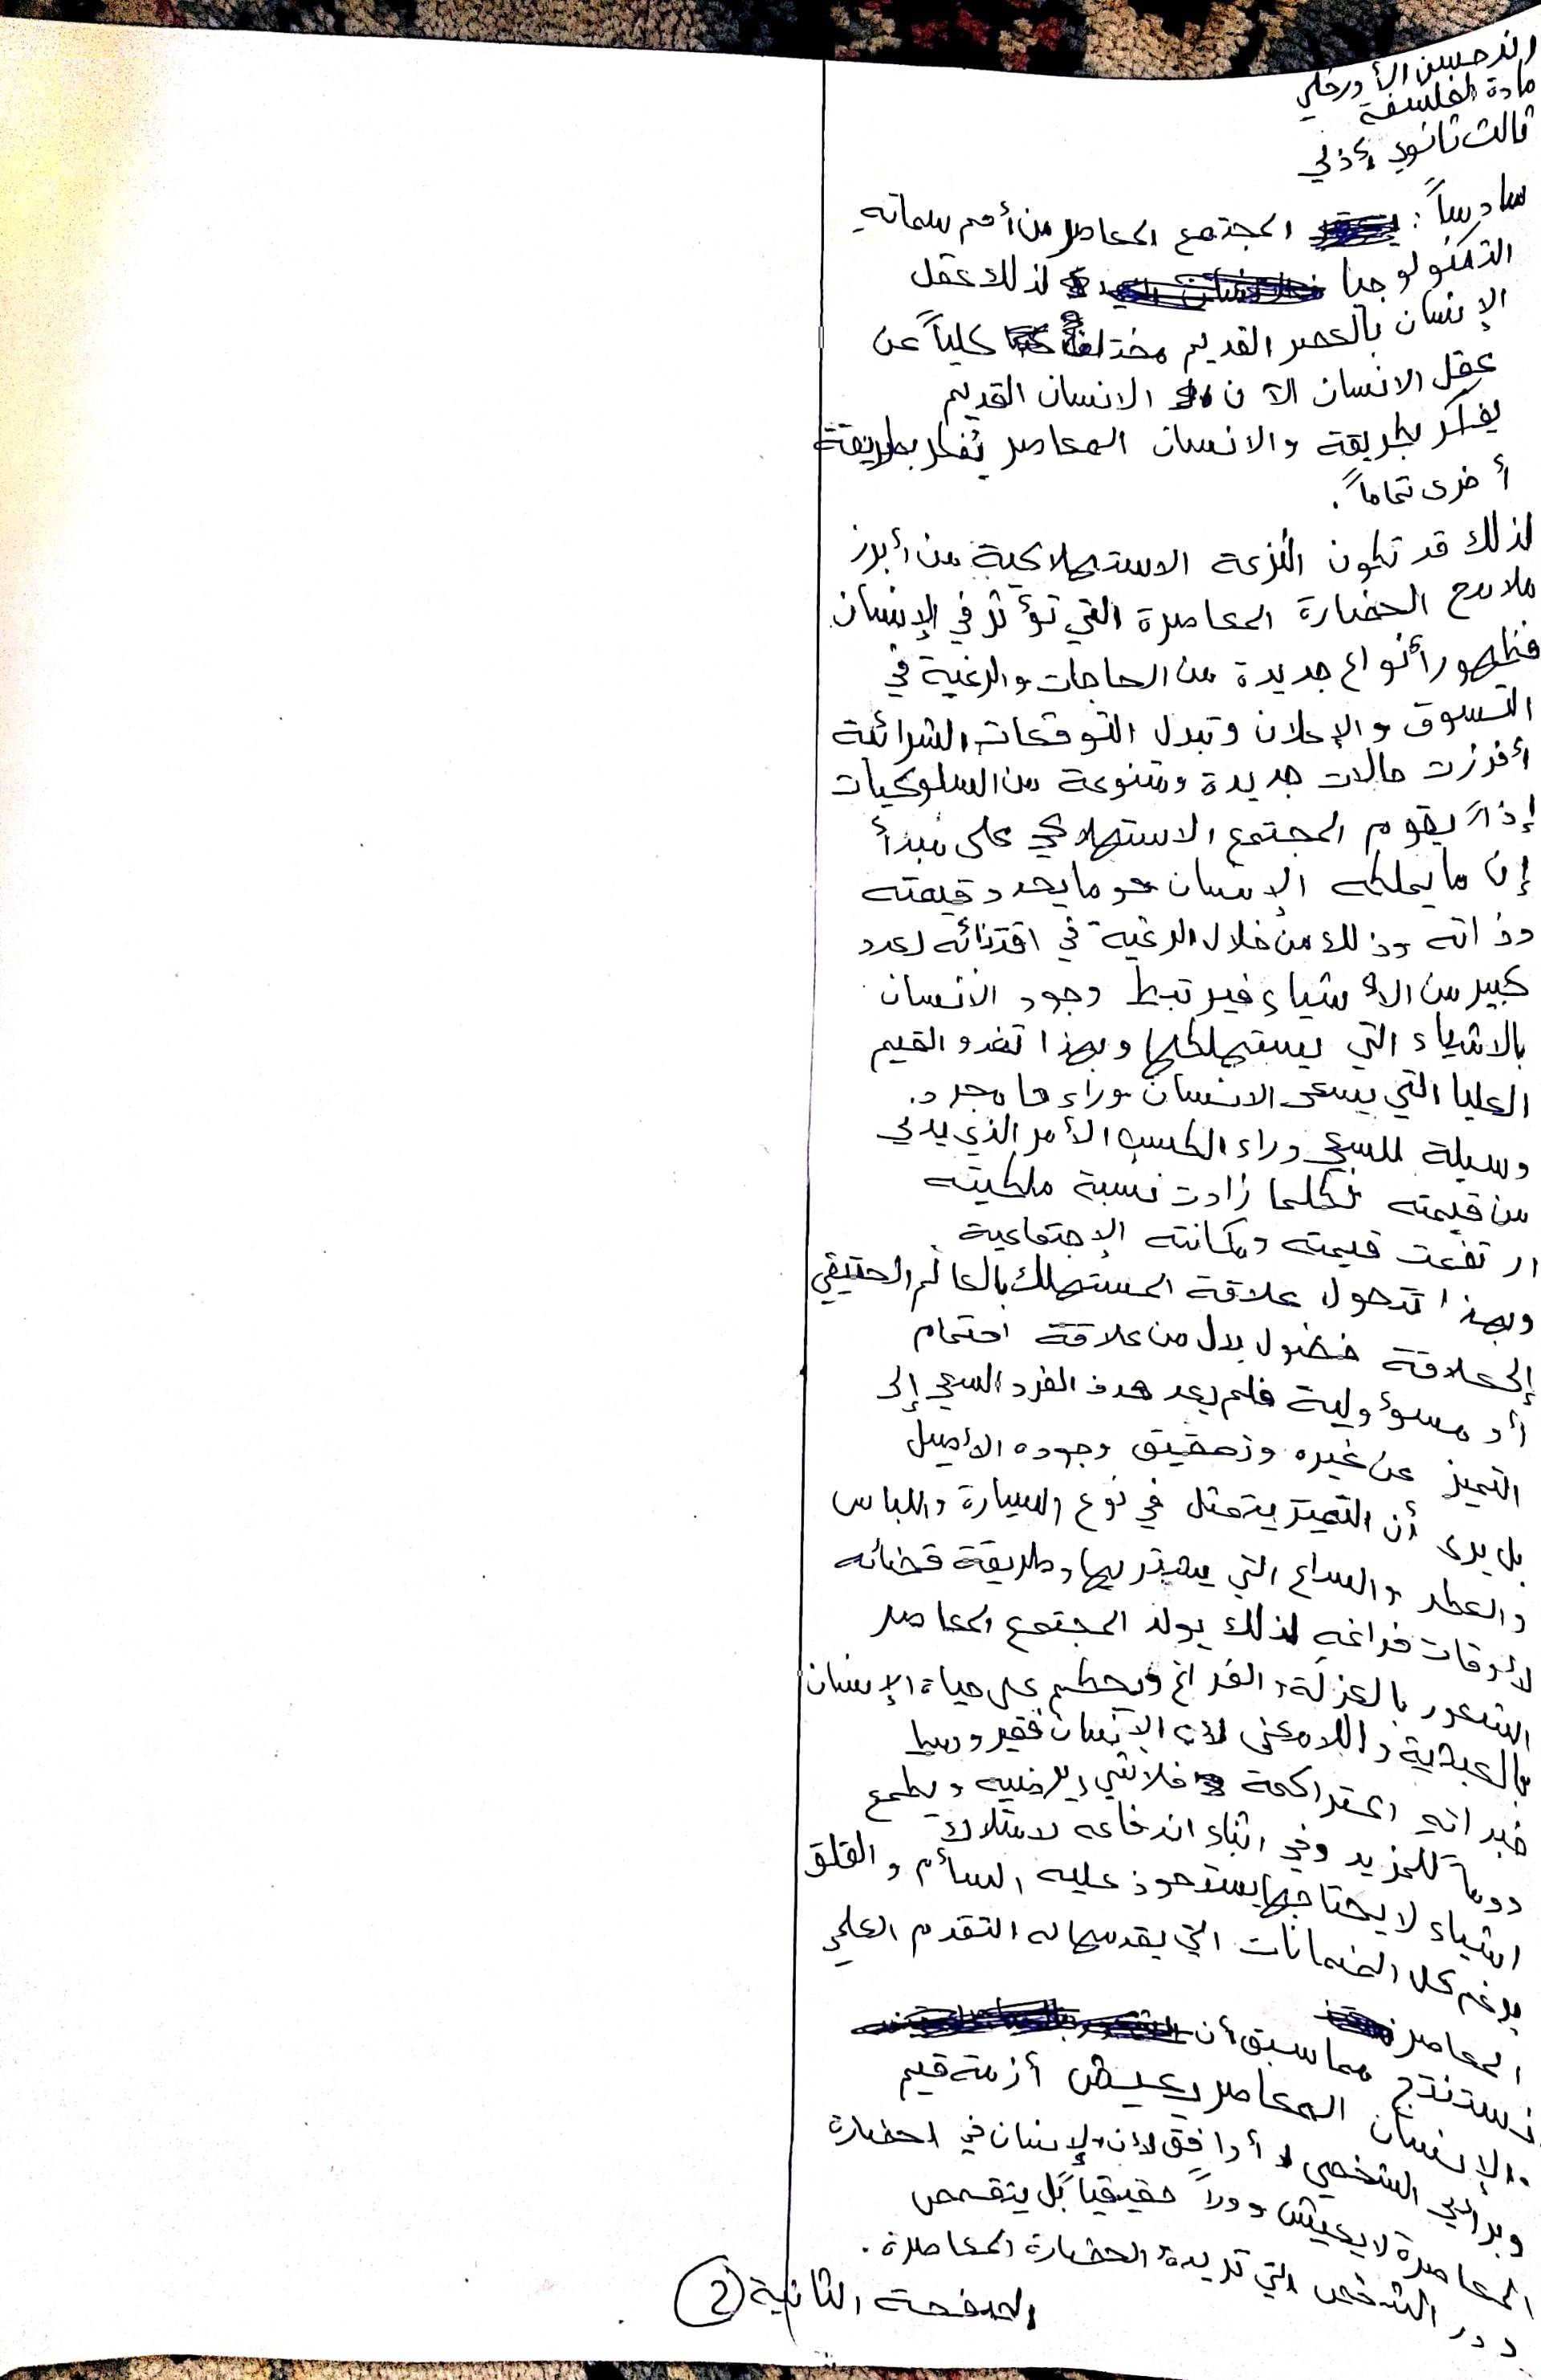 الأورفلي
مادة الفلسفة
ثالث ثانوي أدبي
سادساً: المجتمع المعاصر من أهم سماته
التكنولوجيا لذلك عقل
الإنسان بالعصر القديم مختلف كلياً عن
عقل الانسان الآن الانسان القديم
يفكر بطريقة والانسان المعاصر يُفكر بطريقة
أخرى تماماً.
لذلك قد تكون النزعة الاستهلاكية من أبرز
ملامح الحضارة المعاصرة التي تؤثر في الإنسان
فظهور أنواع جديدة من الحاجات والرغبة في
التسوق والإعلان وتبدل التوقعات الشرائية
أفرزت حالات جديدة ومتنوعة من السلوكيات
إذاً يقوم المجتمع الاستهلاكي على مبدأ
إن ما يملكه الإنسان هو ما يحدد قيمته
وذاته وذلك من خلال الرغبة في اقتنائه لعدد
كبير من الأشياء فيرتبط وجود الانسان
بالاشياء التي يستهلكها وبهذا تغدو القيم
العليا التي يسعى الانسان وراءها مجرد
وسيلة للسعي وراء الكسب الأمر الذي يدني
من قيمته فكلما زادت نسبة ملكيته
ارتفعت قيمته ومكانته الإجتماعية.
وبهذا تتحول علاقة المستهلك بالعالم الحقيقي
إلى علاقة فضول بدل من علاقة اهتمام
أو مسؤولية فلم يعد هدف الفرد السعي إلى
التميز عن غيره وتحقيق وجوده الأصيل
بل يرى أن التميّز يتمثل في نوع السيارة واللباس
والعطر والسلع التي يشتريها وطريقة قضائه
لأوقات فراغه لذلك يولد المجتمع المعاصر
الشعور بالعزلة والفراغ ويحكم على حياة الإنسان
بالعبثية واللامعنى لأن الإنسان فقير وسط
خبراته المتراكمة فلاشيء يرضيه ويطمع
دوماً للمزيد وفي اثناء اندفاعه لامتلاك
اشياء لا يحتاجها يستحوذ عليه السأم والقلق
برغم كل الضمانات التي يقدمها له التقدم العلمي
المعاصر
نستنتج مما سبق أن
الإنسان المعاصر يعيش أزمة قيم
وبرأيي الشخصي أوافق لأن الإنسان في الحضارة
المعاصرة لا يعيش دوراً حقيقياً بل يتقمص
دور الشخص التي تريده الحضارة المعاصرة.
الصفحة الثانية 2